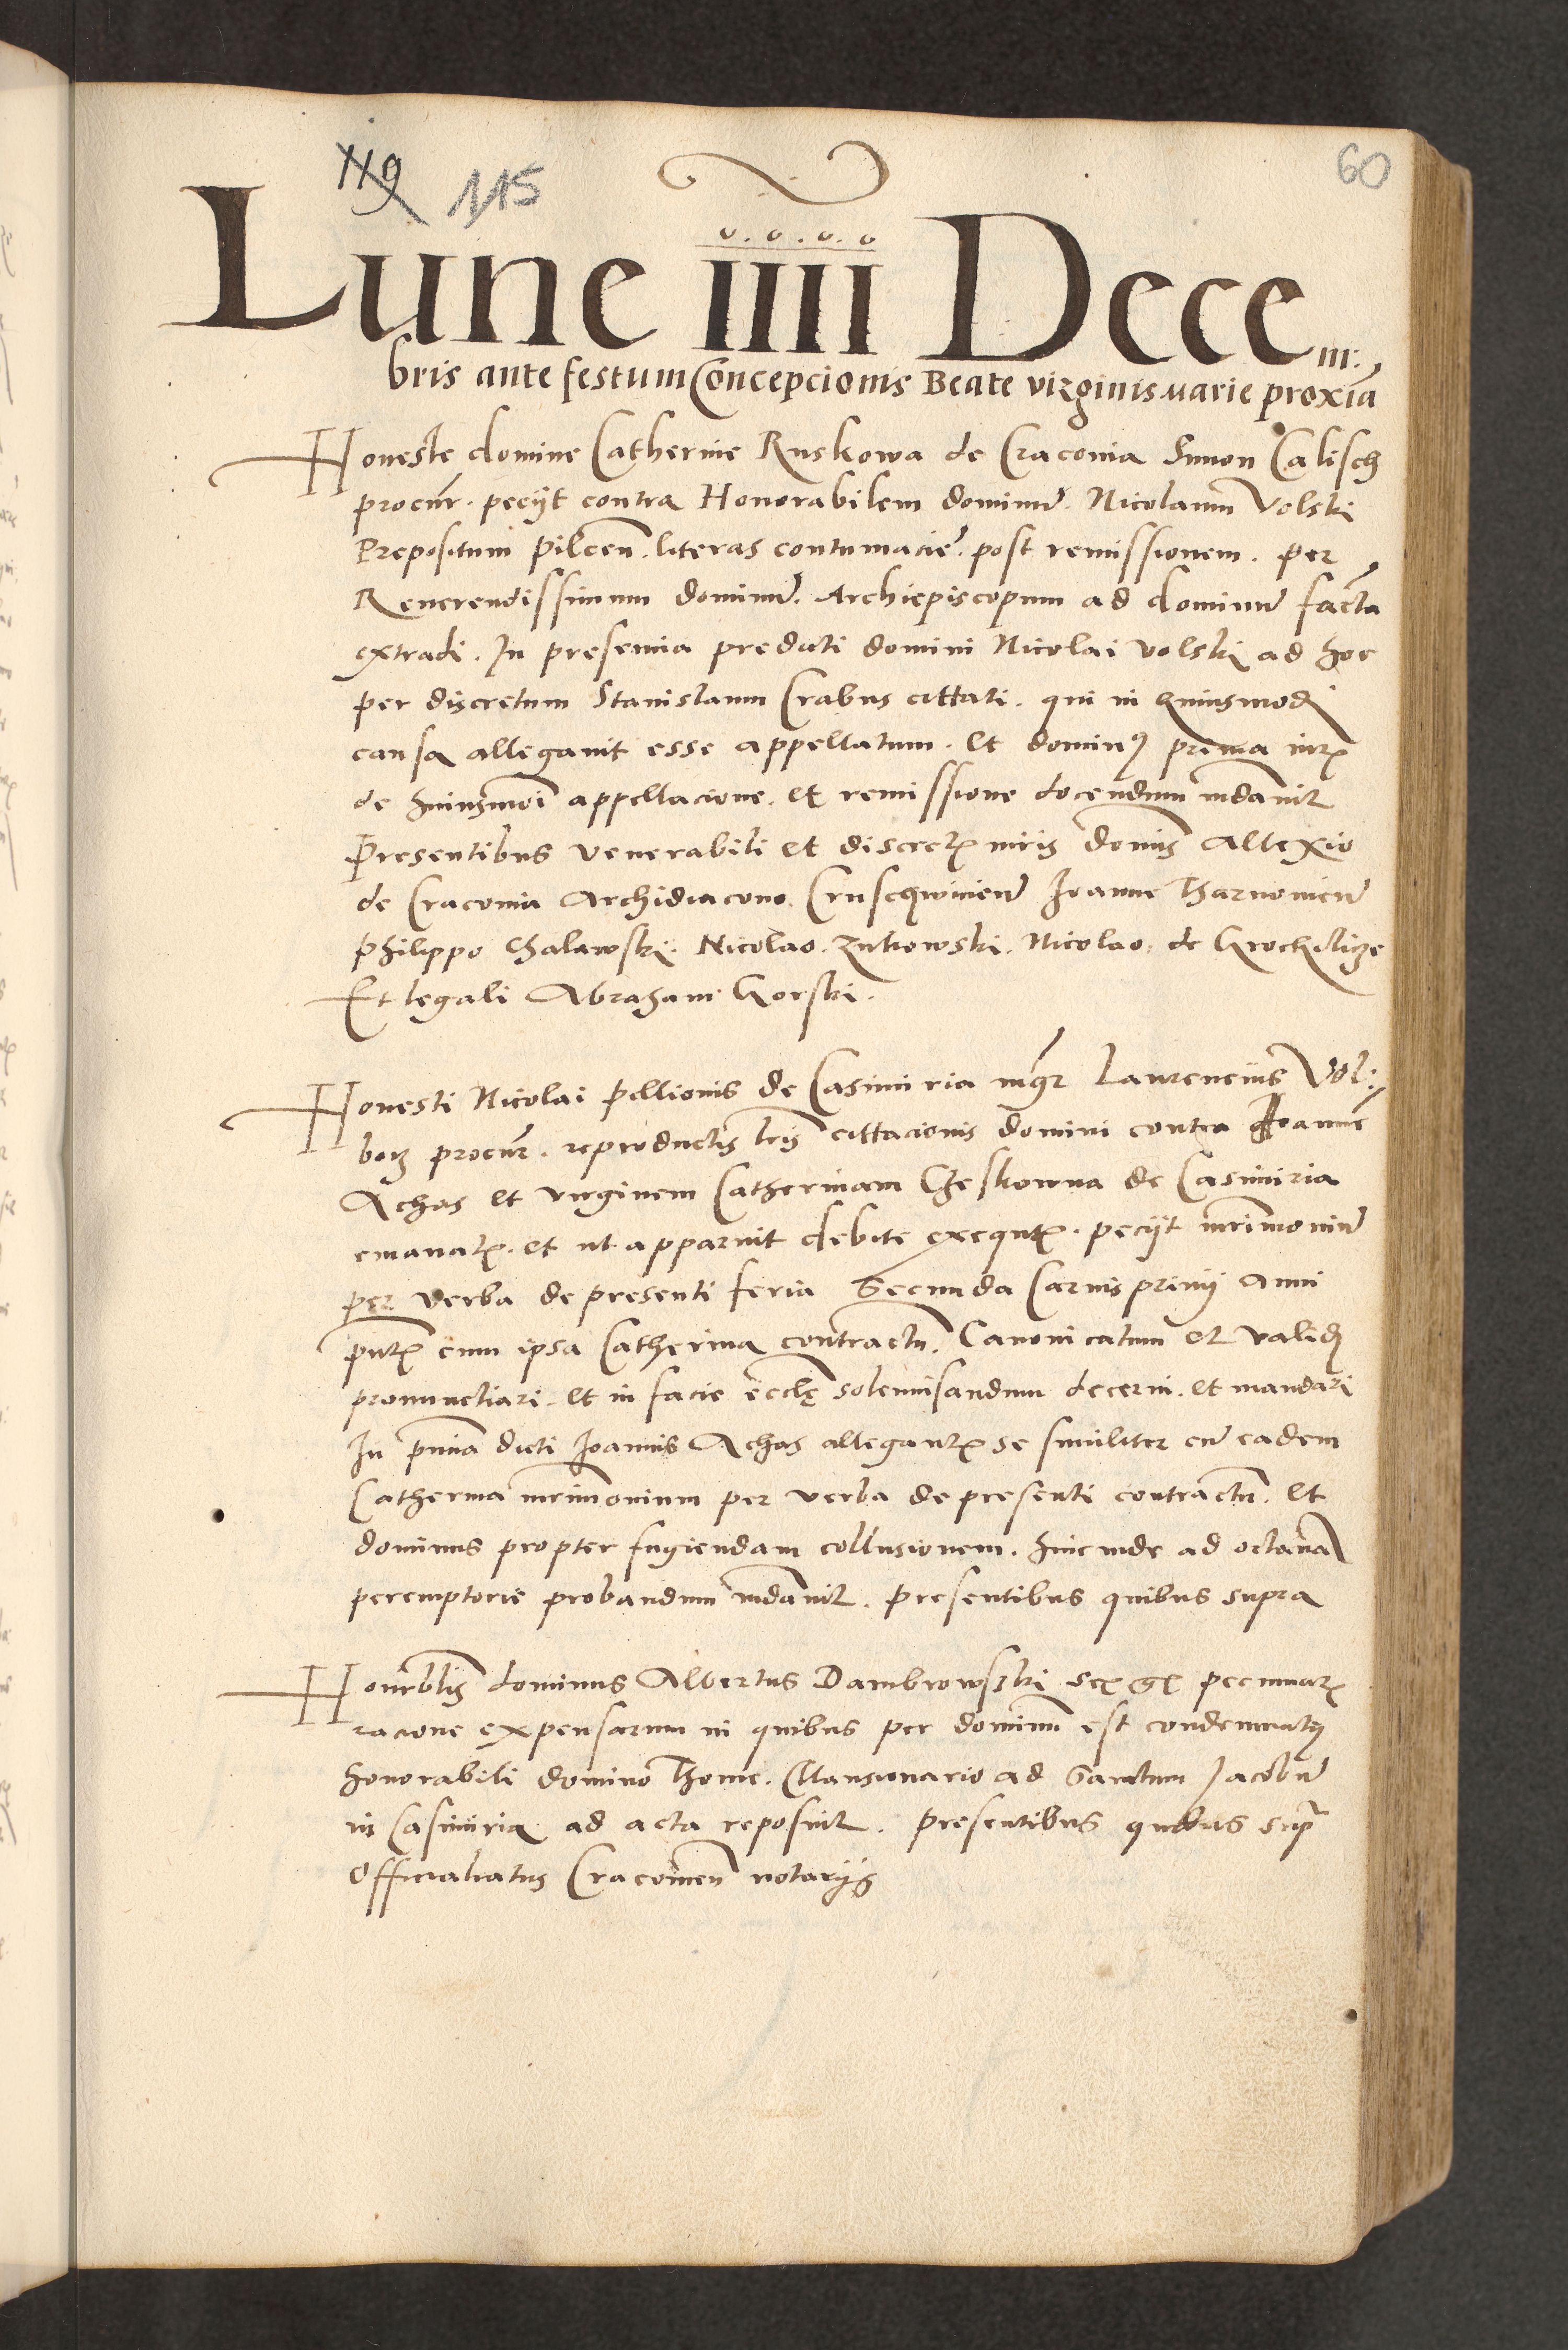 119 115 60
Lune iiii Decem:
bris ante festum Concepcionis Beate virginis Marie proxīa
Honeste domine Catherine Ruskowa de Craconia Simon Calisch
procur̄. peciit contra Honorabilem dominū. Nicolaum Volski
Prepositum pilcen̄. literas contumacie. post remissionem. per
Reuerendissimum dominū. Archiepiscopum ad dominū facta
extradi. In presencia predicti domini Nicolai Volski ad hoc
per discretum Stanislaum Crabus cittati. qui in huiusmodi
causa allegauit esse appellatum. Et dominus
de huiusmoī appellacione. et remissione docendum mdauit
Presentibus venerabili et discretis viris domīs Allexio
de Craconia Archidiacono. Ioanne Tharnouien̄
Philippo Chalawski. Nicolao. Zukowski. Nicolao. de
Et legali Abraham Gorski.
Honesti Nicolai pellionis de Casimiria mgr̄ Laurencius Vol:
borz procur̄. reproductis lr̄is cittacionis domini contra Ioannē
Achas et virginem Catherinam Czeskowna de Casimiria
emanatis. et ut apparuit debite exequtis. peciit mr̄imoniū
per verba de presenti feria Secunda Carnispriuii Anni
pn̄tis cum ipsa Catherina contractū. Canonicatum et validum
pronunctiari. et in facie eccle̜ solemnisandum decerni. et mandari
In pn̄cia dicti Ioannis Achas allegantis se similiter cū eadem
Catherina mr̄imonium per verba de presenti contractū. Et
dominus propter fugiendam collusionem. hincinde ad octauā
peremptorie probandum mdauit. presentibus quibus supra
Honrblis dominus Albertus Dambrowski pecuniarum
racione expensarum in quibus per dominū est condemnatus
honorabili domino Thome. Mansionario ad Sanctum Iacobū
in Casimiria ad acta reposuit. presentibus quibus supra
Officialiatus Cracouien̄ notariis